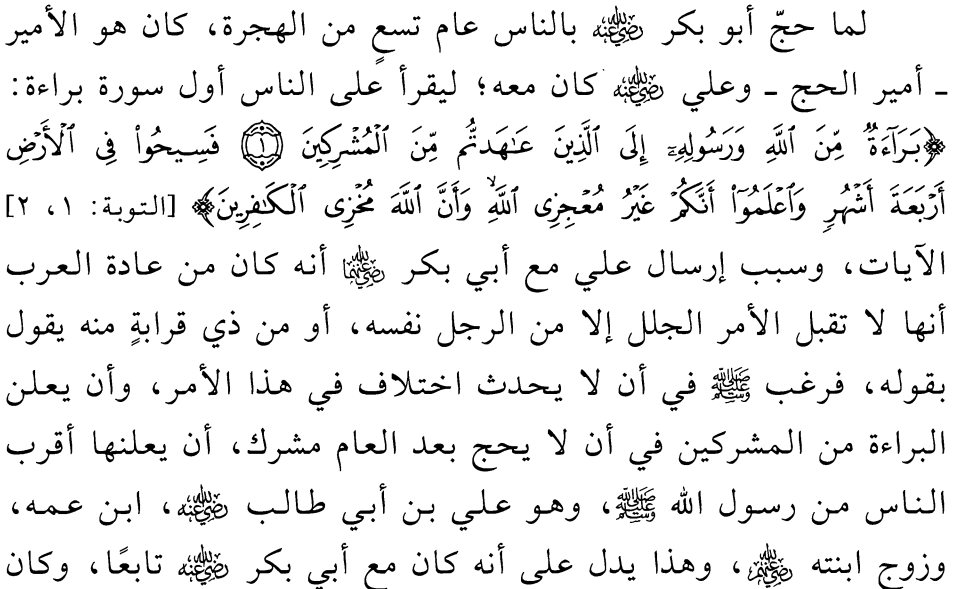 لما حجّ أبو بكر رضي الله عنه بالناس عام تسعٍ من الهجرة، كان هو الأمير
ـ أمير الحج ـ وعلي رضي الله عنه كان معه؛ ليقرأ على الناس أول سورة براءة:
﴿بَرَآءَةٌ مِّنَ ٱللَّهِ وَرَسُولِهِۦٓ إِلَى ٱلَّذِينَ عَٰهَدتُّم مِّنَ ٱلْمُشْرِكِينَ ۝١ فَسِيحُوا۟ فِى ٱلْأَرْضِ
أَرْبَعَةَ أَشْهُرٍ وَٱعْلَمُوٓا۟ أَنَّكُمْ غَيْرُ مُعْجِزِى ٱللَّهِ ۙ وَأَنَّ ٱللَّهَ مُخْزِى ٱلْكَٰفِرِينَ﴾ [التوبة: ١، ٢]
الآيات، وسبب إرسال علي مع أبي بكر رضي الله عنهما أنه كان من عادة العرب
أنها لا تقبل الأمر الجلل إلا من الرجل نفسه، أو من ذي قرابةٍ منه يقول
بقوله، فرغب ﷺ في أن لا يحدث اختلاف في هذا الأمر، وأن يعلن
البراءة من المشركين في أن لا يحج بعد العام مشرك، أن يعلنها أقرب
الناس من رسول الله ﷺ، وهو علي بن أبي طالب رضي الله عنه، ابن عمه،
وزوج ابنته رضي الله عنهم، وهذا يدل على أنه كان مع أبي بكر رضي الله عنه تابعًا، وكان